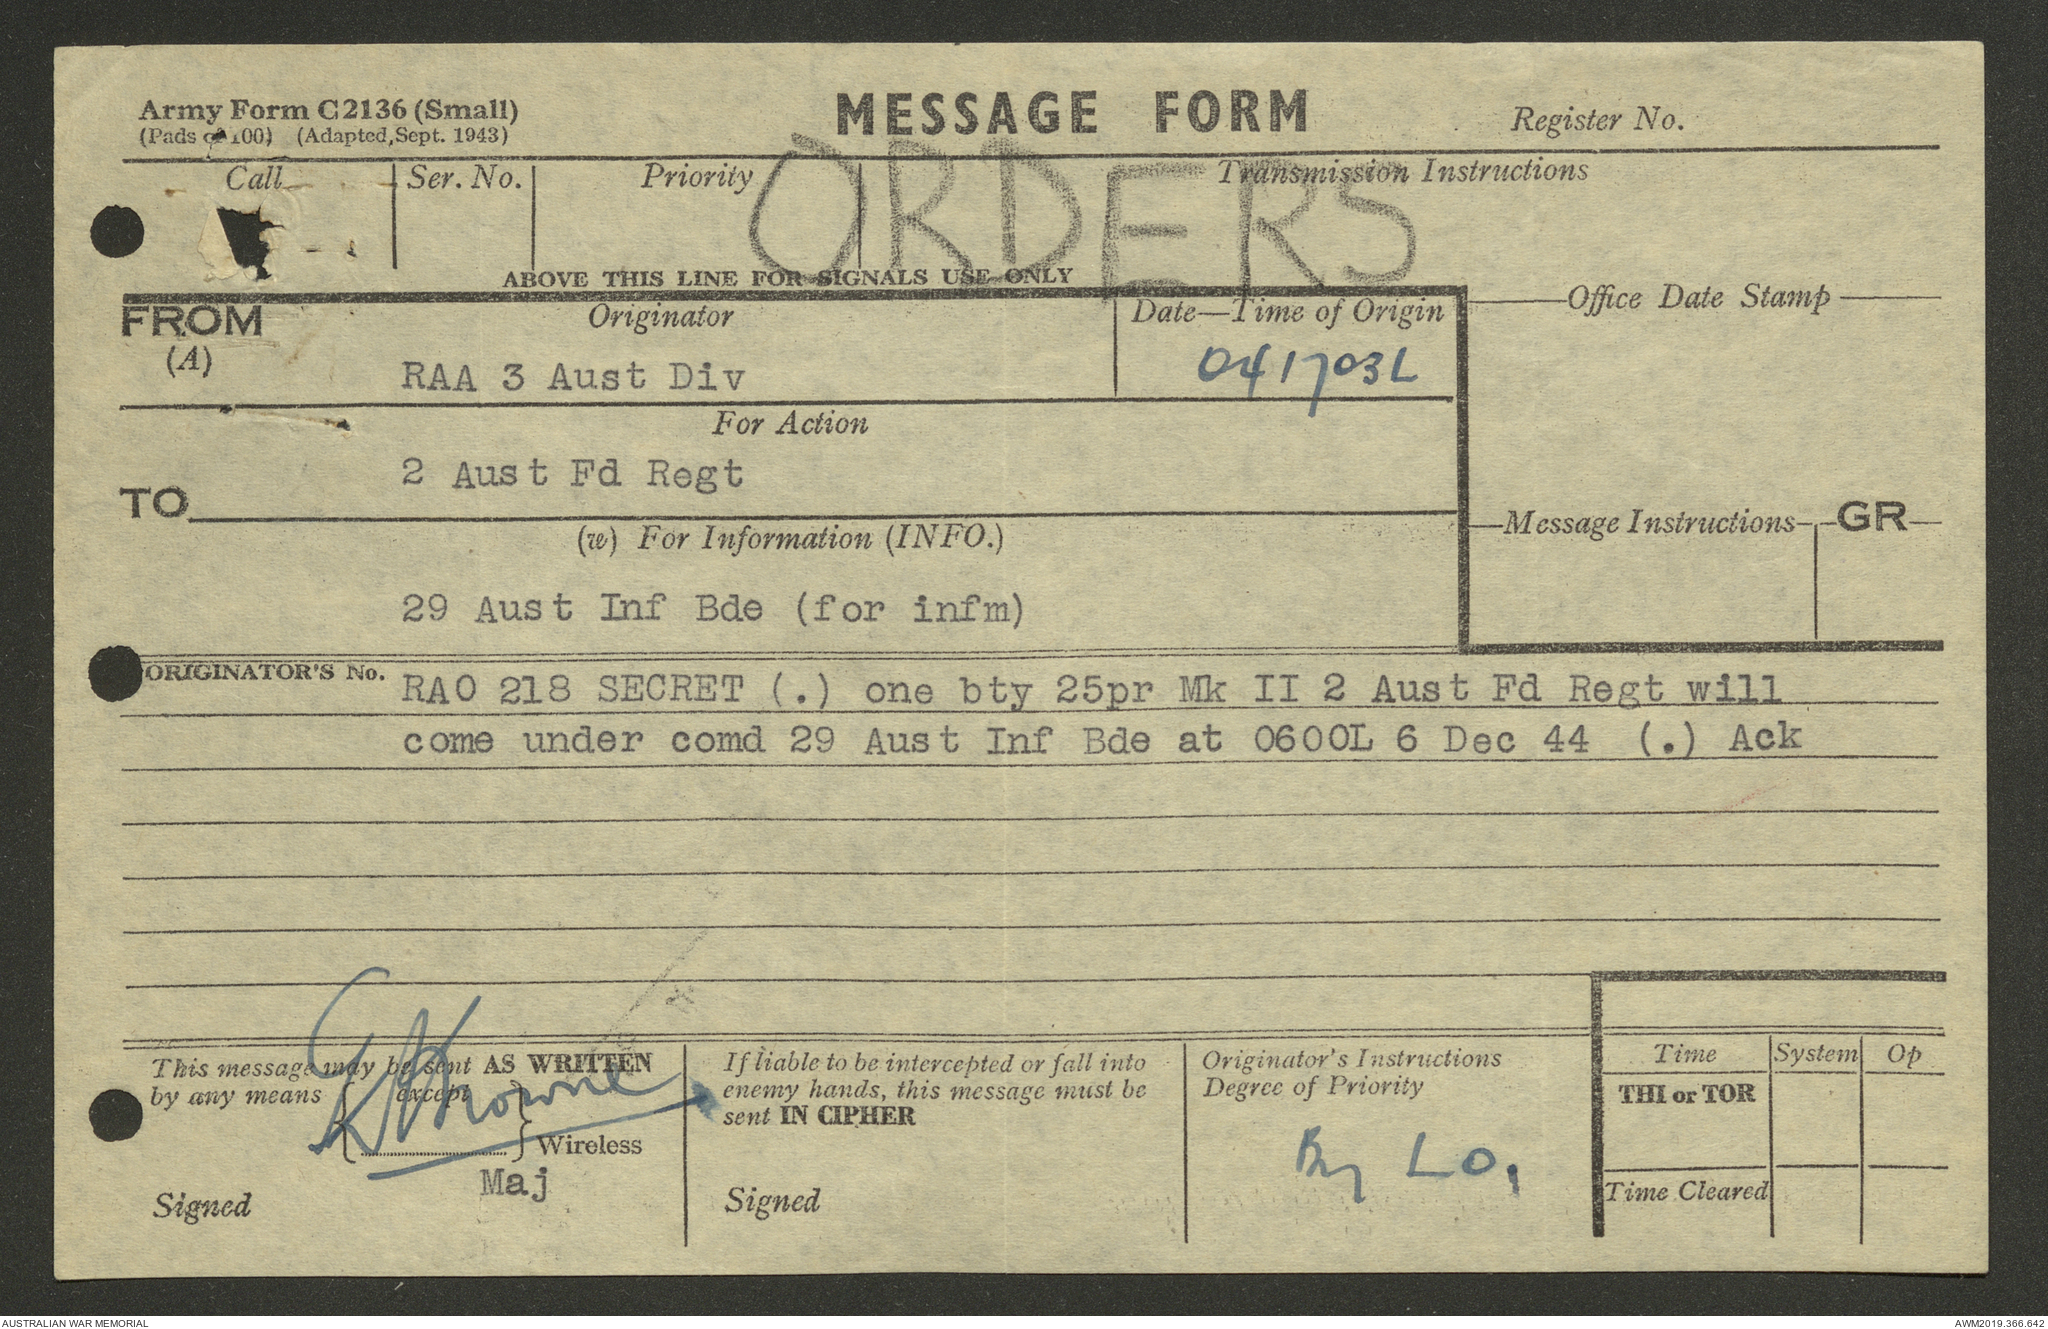 Army Form C2136 (Small)
(Pads of 100) (Adapted, Sept. 1943)
MESSAGE FORM
Register No.
ORDERS
Call
Ser. No.
Priority
Transmission Instructions
ABOVE THIS LINE FOR SIGNALS USE ONLY
FROM
(A)
Originator
Date—Time of Origin
Office Date Stamp
RAA 3 Aust Div
041703L
For Action
2 Aust Fd Regt
TO
(w) For Information (INFO.)
Message Instructions
GR
29 Aust Inf Bde (for infm)
ORIGINATOR'S No.
RAO 218 SECRET (.) one bty 25pr Mk II 2 Aust Fd Regt will
come under comd 29 Aust Inf Bde at 0600L 6 Dec 44 (.) Ack
This message may be sent AS WRITTEN
by any means except
Wireless
Maj
Signed
If liable to be intercepted or fall into
enemy hands, this message must be
sent IN CIPHER
Signed
Originator's Instructions
Degree of Priority
By LO.
Time
System
Op
THI or TOR
Time Cleared
AUSTRALIAN WAR MEMORIAL
AWM2019.366.642